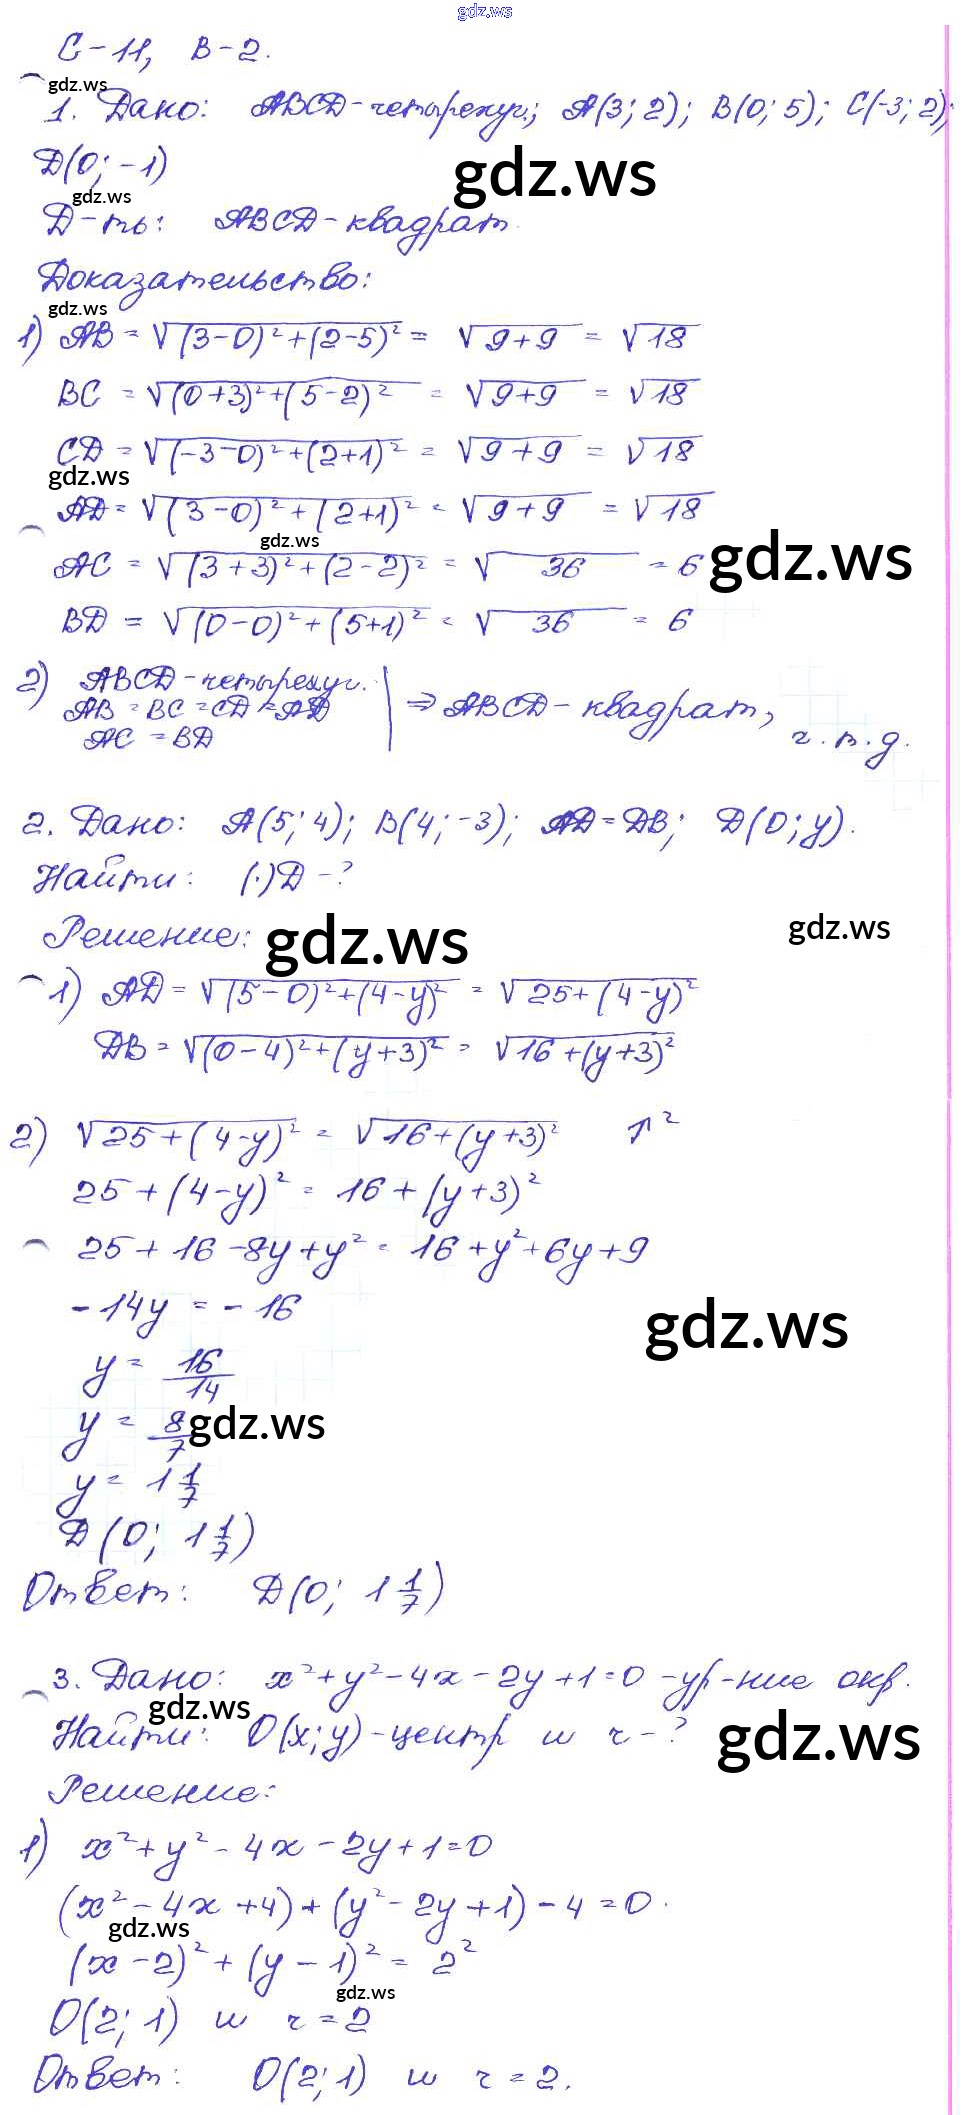 gdz.ws
С-11, В-2.
gdz.ws
1. Дано: ABCD-четырехуг.; A(3; 2); B(0; 5); C(-3; 2);
D(0; -1)
gdz.ws
gdz.ws
Д-ть: ABCD-квадрат.
Доказательство:
gdz.ws
1) AB = √(3-0)²+(2-5)² = √9+9 = √18
BC = √(0+3)²+(5-2)² = √9+9 = √18
CD = √(-3-0)²+(2+1)² = √9+9 = √18
gdz.ws
AD = √(3-0)²+(2+1)² = √9+9 = √18
gdz.ws
gdz.ws
AC = √(3+3)²+(2-2)² = √36 = 6
BD = √(0-0)²+(5+1)² = √36 = 6
2) ABCD-четырехуг.
AB = BC = CD = AD
AC = BD
⇒ ABCD-квадрат,
ч.т.д.
2. Дано: A(5; 4); B(4; -3); AD = DB; D(0; y).
Найти: (·)D-?
Решение:
gdz.ws
gdz.ws
1) AD = √(5-0)²+(4-y)² = √25+(4-y)²
DB = √(0-4)²+(y+3)² = √16+(y+3)²
2) √25+(4-y)² = √16+(y+3)² ↑²
25+(4-y)² = 16+(y+3)²
25+16-8y+y² = 16+y²+6y+9
-14y = -16
gdz.ws
y = 16/14
y = 8/7
gdz.ws
y = 1 1/7
D(0; 1 1/7)
Ответ: D(0; 1 1/7)
3. Дано: x²+y²-4x-2y+1=0-ур-ние окр.
gdz.ws
Найти: O(x; y)-центр и r-?
gdz.ws
Решение:
1) x²+y²-4x-2y+1=0
(x²-4x+4)+(y²-2y+1)-4=0.
gdz.ws
(x-2)²+(y-1)² = 2²
gdz.ws
O(2; 1) и r=2
Ответ: O(2; 1) и r=2.